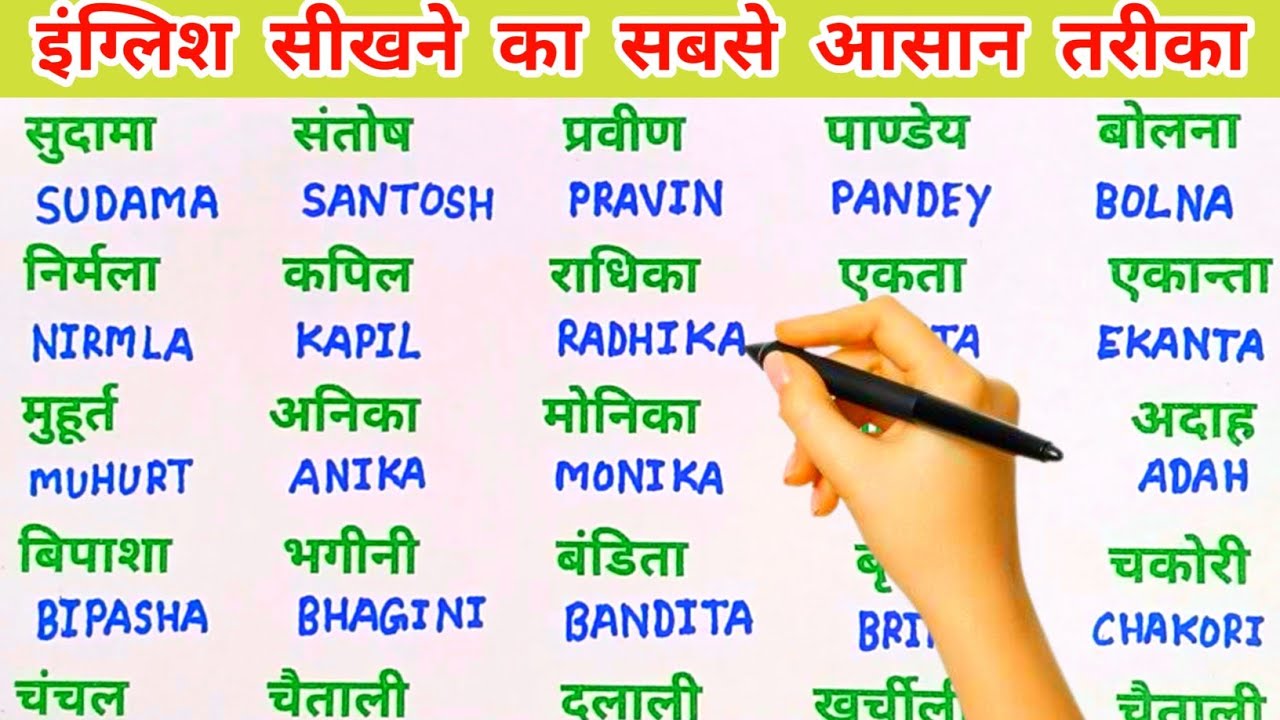 इंग्लिश सीखने का सबसे आसान तरीका
सुदामा संतोष प्रवीण पाण्डेय बोलना
SUDAMA SANTOSH PRAVIN PANDEY BOLNA
निर्मला कपिल राधिका एकता एकान्ता
NIRMLA KAPIL RADHIKA EKANTA
मुहूर्त अनिका मोनिका अदाह
MUHURT ANIKA MONIKA ADAH
बिपाशा भगीनी बंडिता चकोरी
BIPASHA BHAGINI BANDITA CHAKORI
चंचल चैताली दलाली खर्चीली चैताली